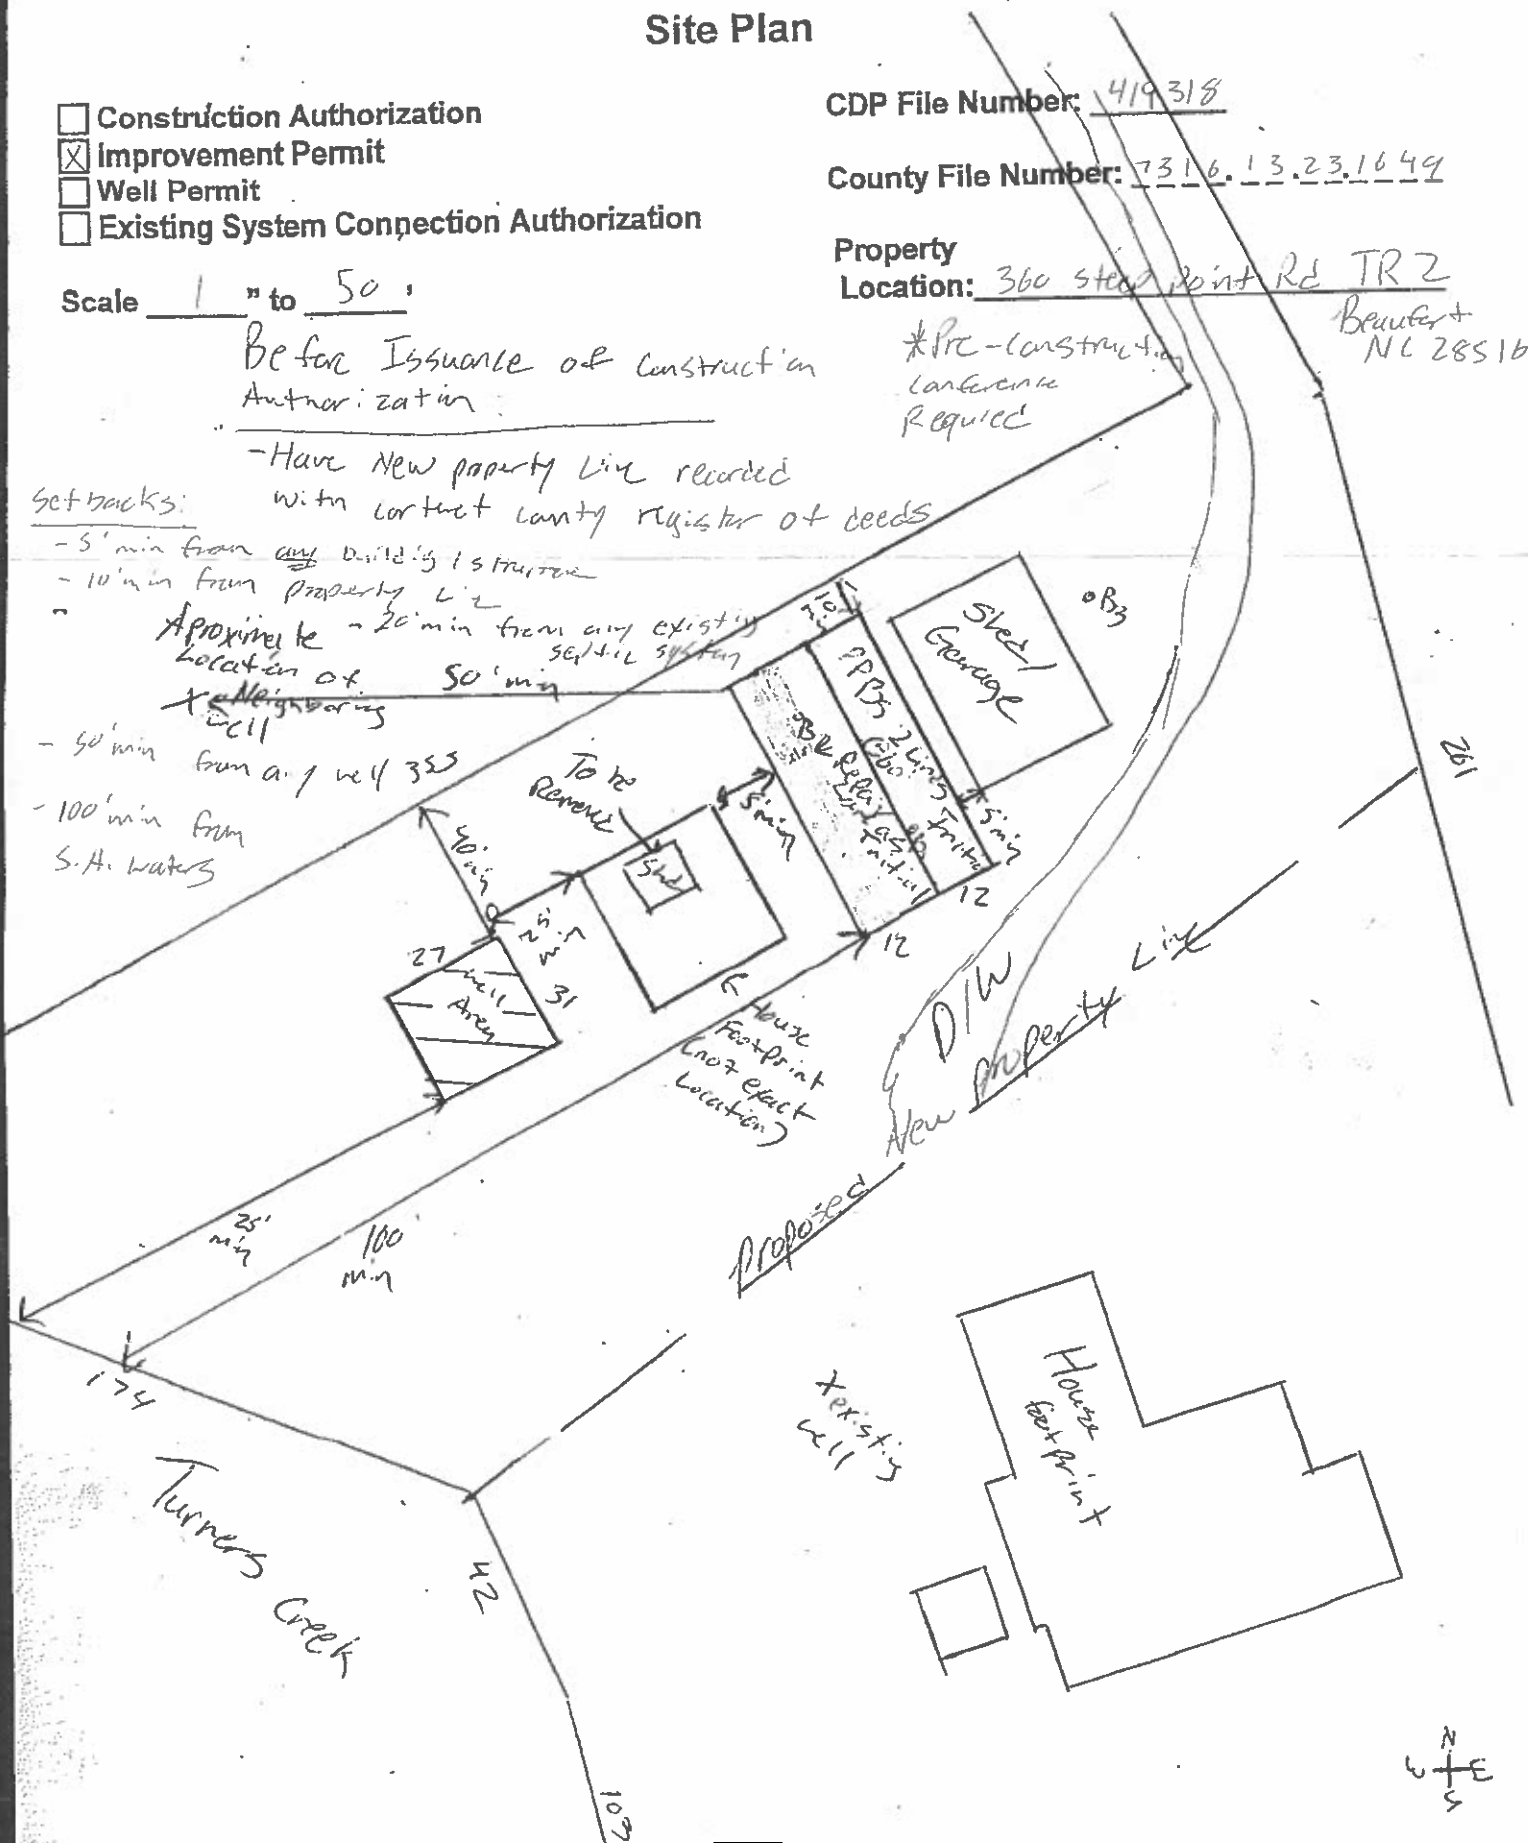 Site Plan
Construction Authorization
X Improvement Permit
Well Permit
Existing System Connection Authorization
CDP File Number: 419318
County File Number: 7316.13.23.1649
Property
Location: 360 Steep Point Rd TR 2
Beaufort
NC 28516
Scale 1 " to 50 '
Before Issuance of Construction
Authorization:
- Have New property Line recorded
with carteret county register of deeds
*Pre-Construction
Conference
Required
Setbacks:
- 5' min from any building / structure
- 10' min from property Line
- 20' min from any existing
septic system
Aproximate
Location of
X Neighboring
well
50' min
- 50' min from any well
- 100' min from
S.A. waters
10'
min
Shed/
Garage
B3
2 Lines
Initial
B2 Repair
5' min
5' min
12
12
To be
Removed
Shed
40'
min
25'
min
27
Well
Area
31
House
Footprint
(not exact
Location)
D/W
Proposed New Property Line
261
25'
min
100'
min
174
Turners Creek
42
103
X existing
well
House
footprint
N
W E
S